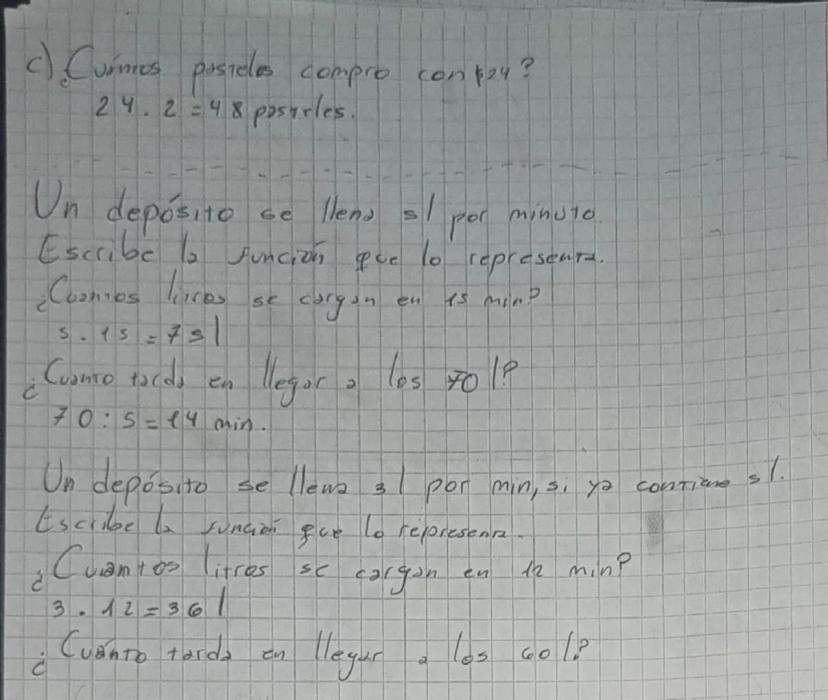 c) ¿Cuántos pasteles compro con $24?
24 . 2 = 48 pasteles.
Un depósito se llena 5l por minuto.
Escribe la función que lo representa.
¿Cuántos litros se cargan en 15 min?
5 . 15 = 75l
¿Cuánto tarda en llegar a los 70 l?
70 : 5 = 14 min.
Un depósito se llena 3l por min, si ya contiene 5l.
Escribe la función que lo representa.
¿Cuántos litros se cargan en 12 min?
3 . 12 = 36 l
¿Cuánto tarda en llegar a los 60 l?